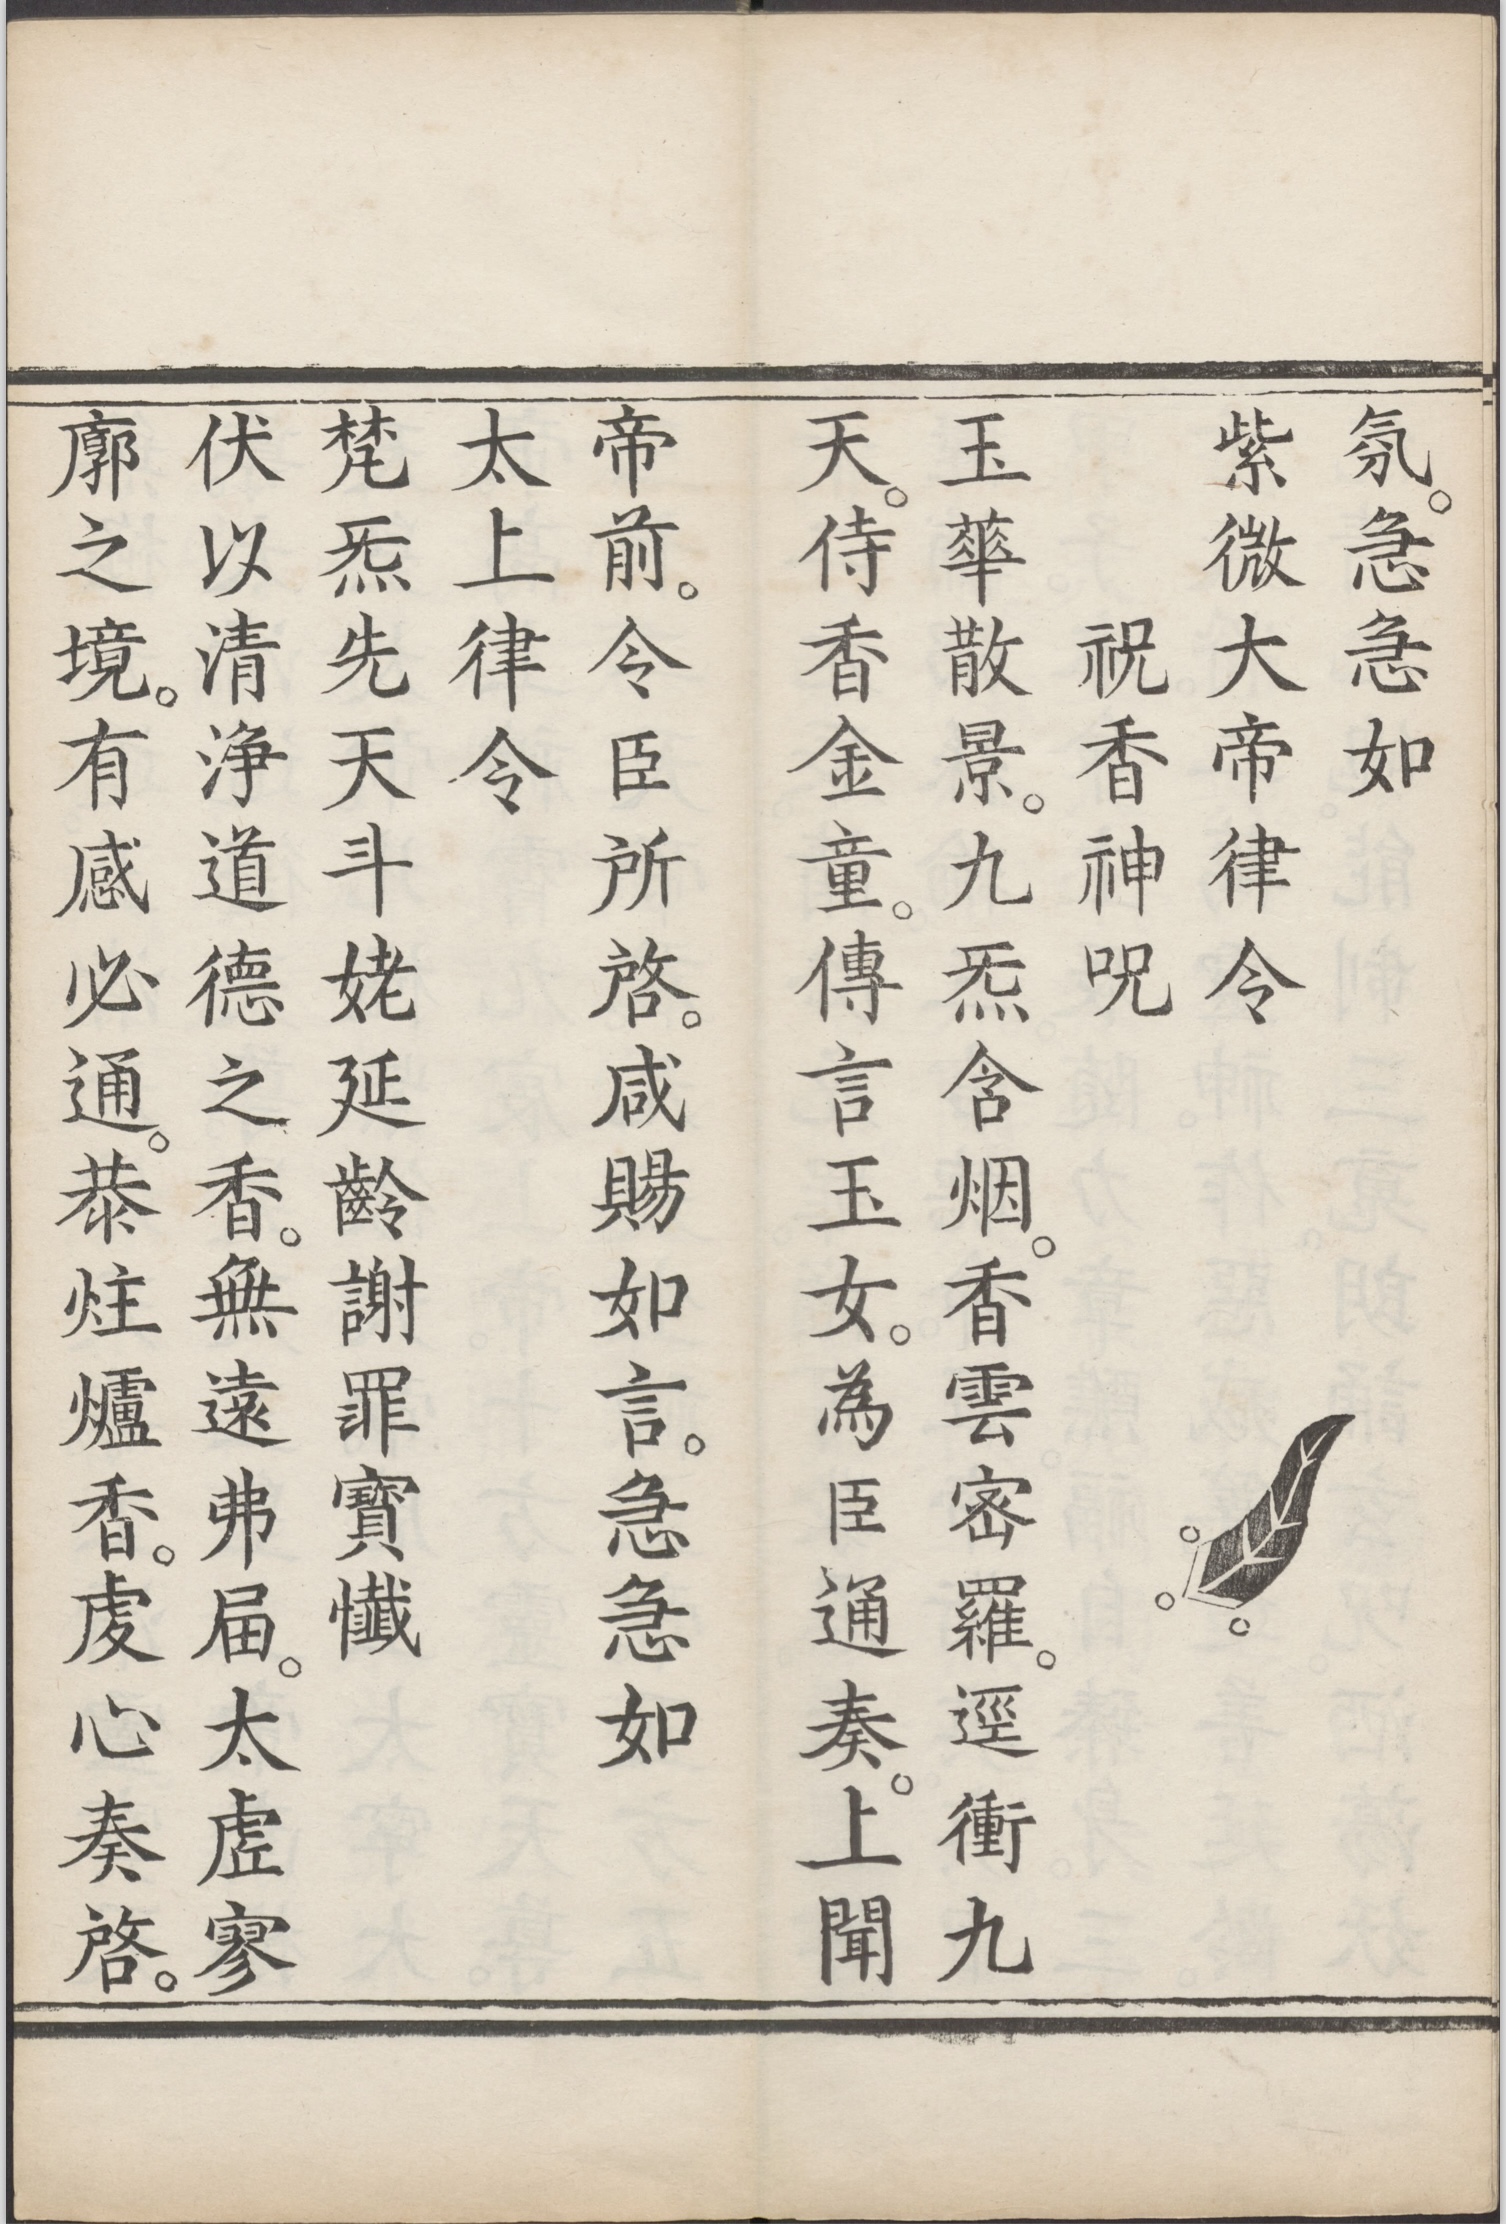 氛。急急如
紫微大帝律令
祝香神呪
玉華散景。九炁含烟。香雲宻羅。逕衝九
天。侍香金童。傳言玉女。為臣通奏。上聞
帝前。令臣所啓。咸賜如言。急急如
太上律令
梵炁先天斗姥延齡謝罪寳懺
伏以清浄道德之香。無遠弗届。太虗寥
廓之境。有感必通。恭炷爐香。䖍心奏啓。